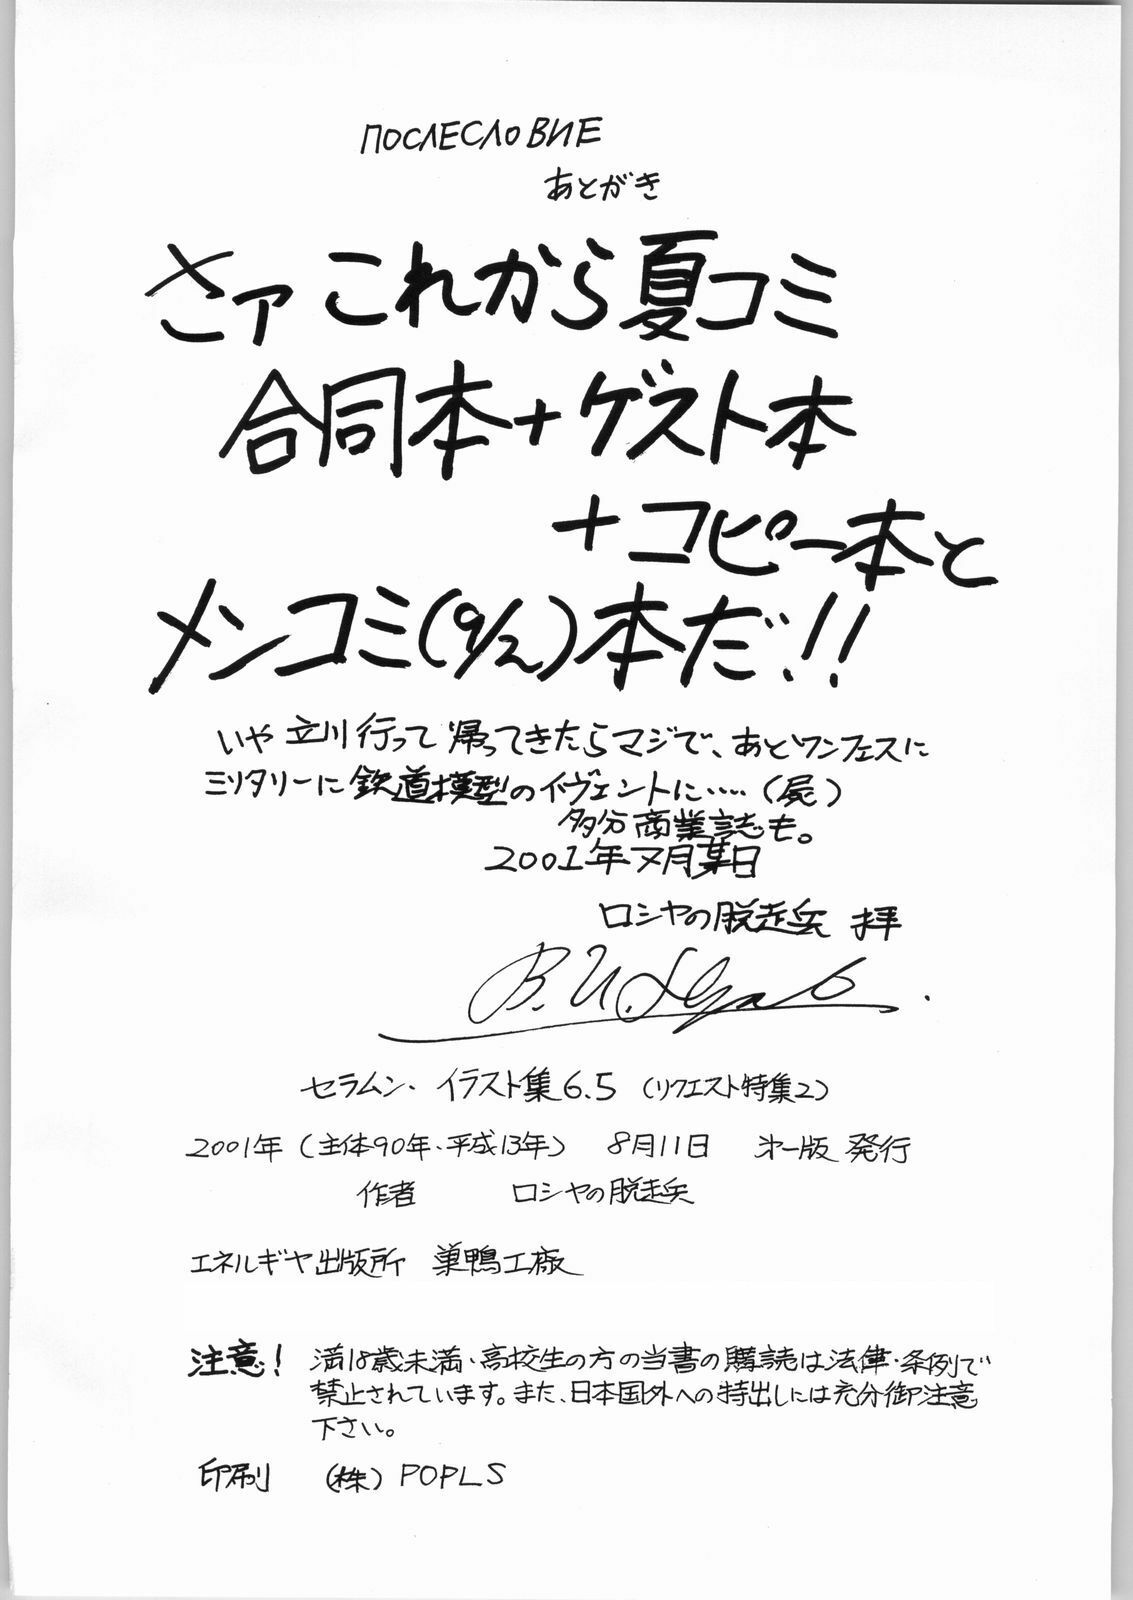 ПОСЛЕСЛОВИЕ
あとがき
さァ これから夏コミ
合同本+ゲスト本
+コピー本と
メンコミ(9/2)本だ!!
いや 立川行って帰ってきたらマジで、あとワンフェスに
ミリタリーに鉄道模型のイヴェントに……(屍)
多分商業誌も。
2001年7月某日
ロシヤの脱走兵 拝
セラムン・イラスト集6.5 (リクエスト特集2)
2001年(主体90年・平成13年) 8月11日 第一版 発行
作者 ロシヤの脱走兵
エネルギヤ出版所 巣鴨工廠
注意! 満18歳未満・高校生の方の当書の購読は法律・条例で
禁止されています。また、日本国外への持出しには充分御注意
下さい。
印刷 (株) POPLS